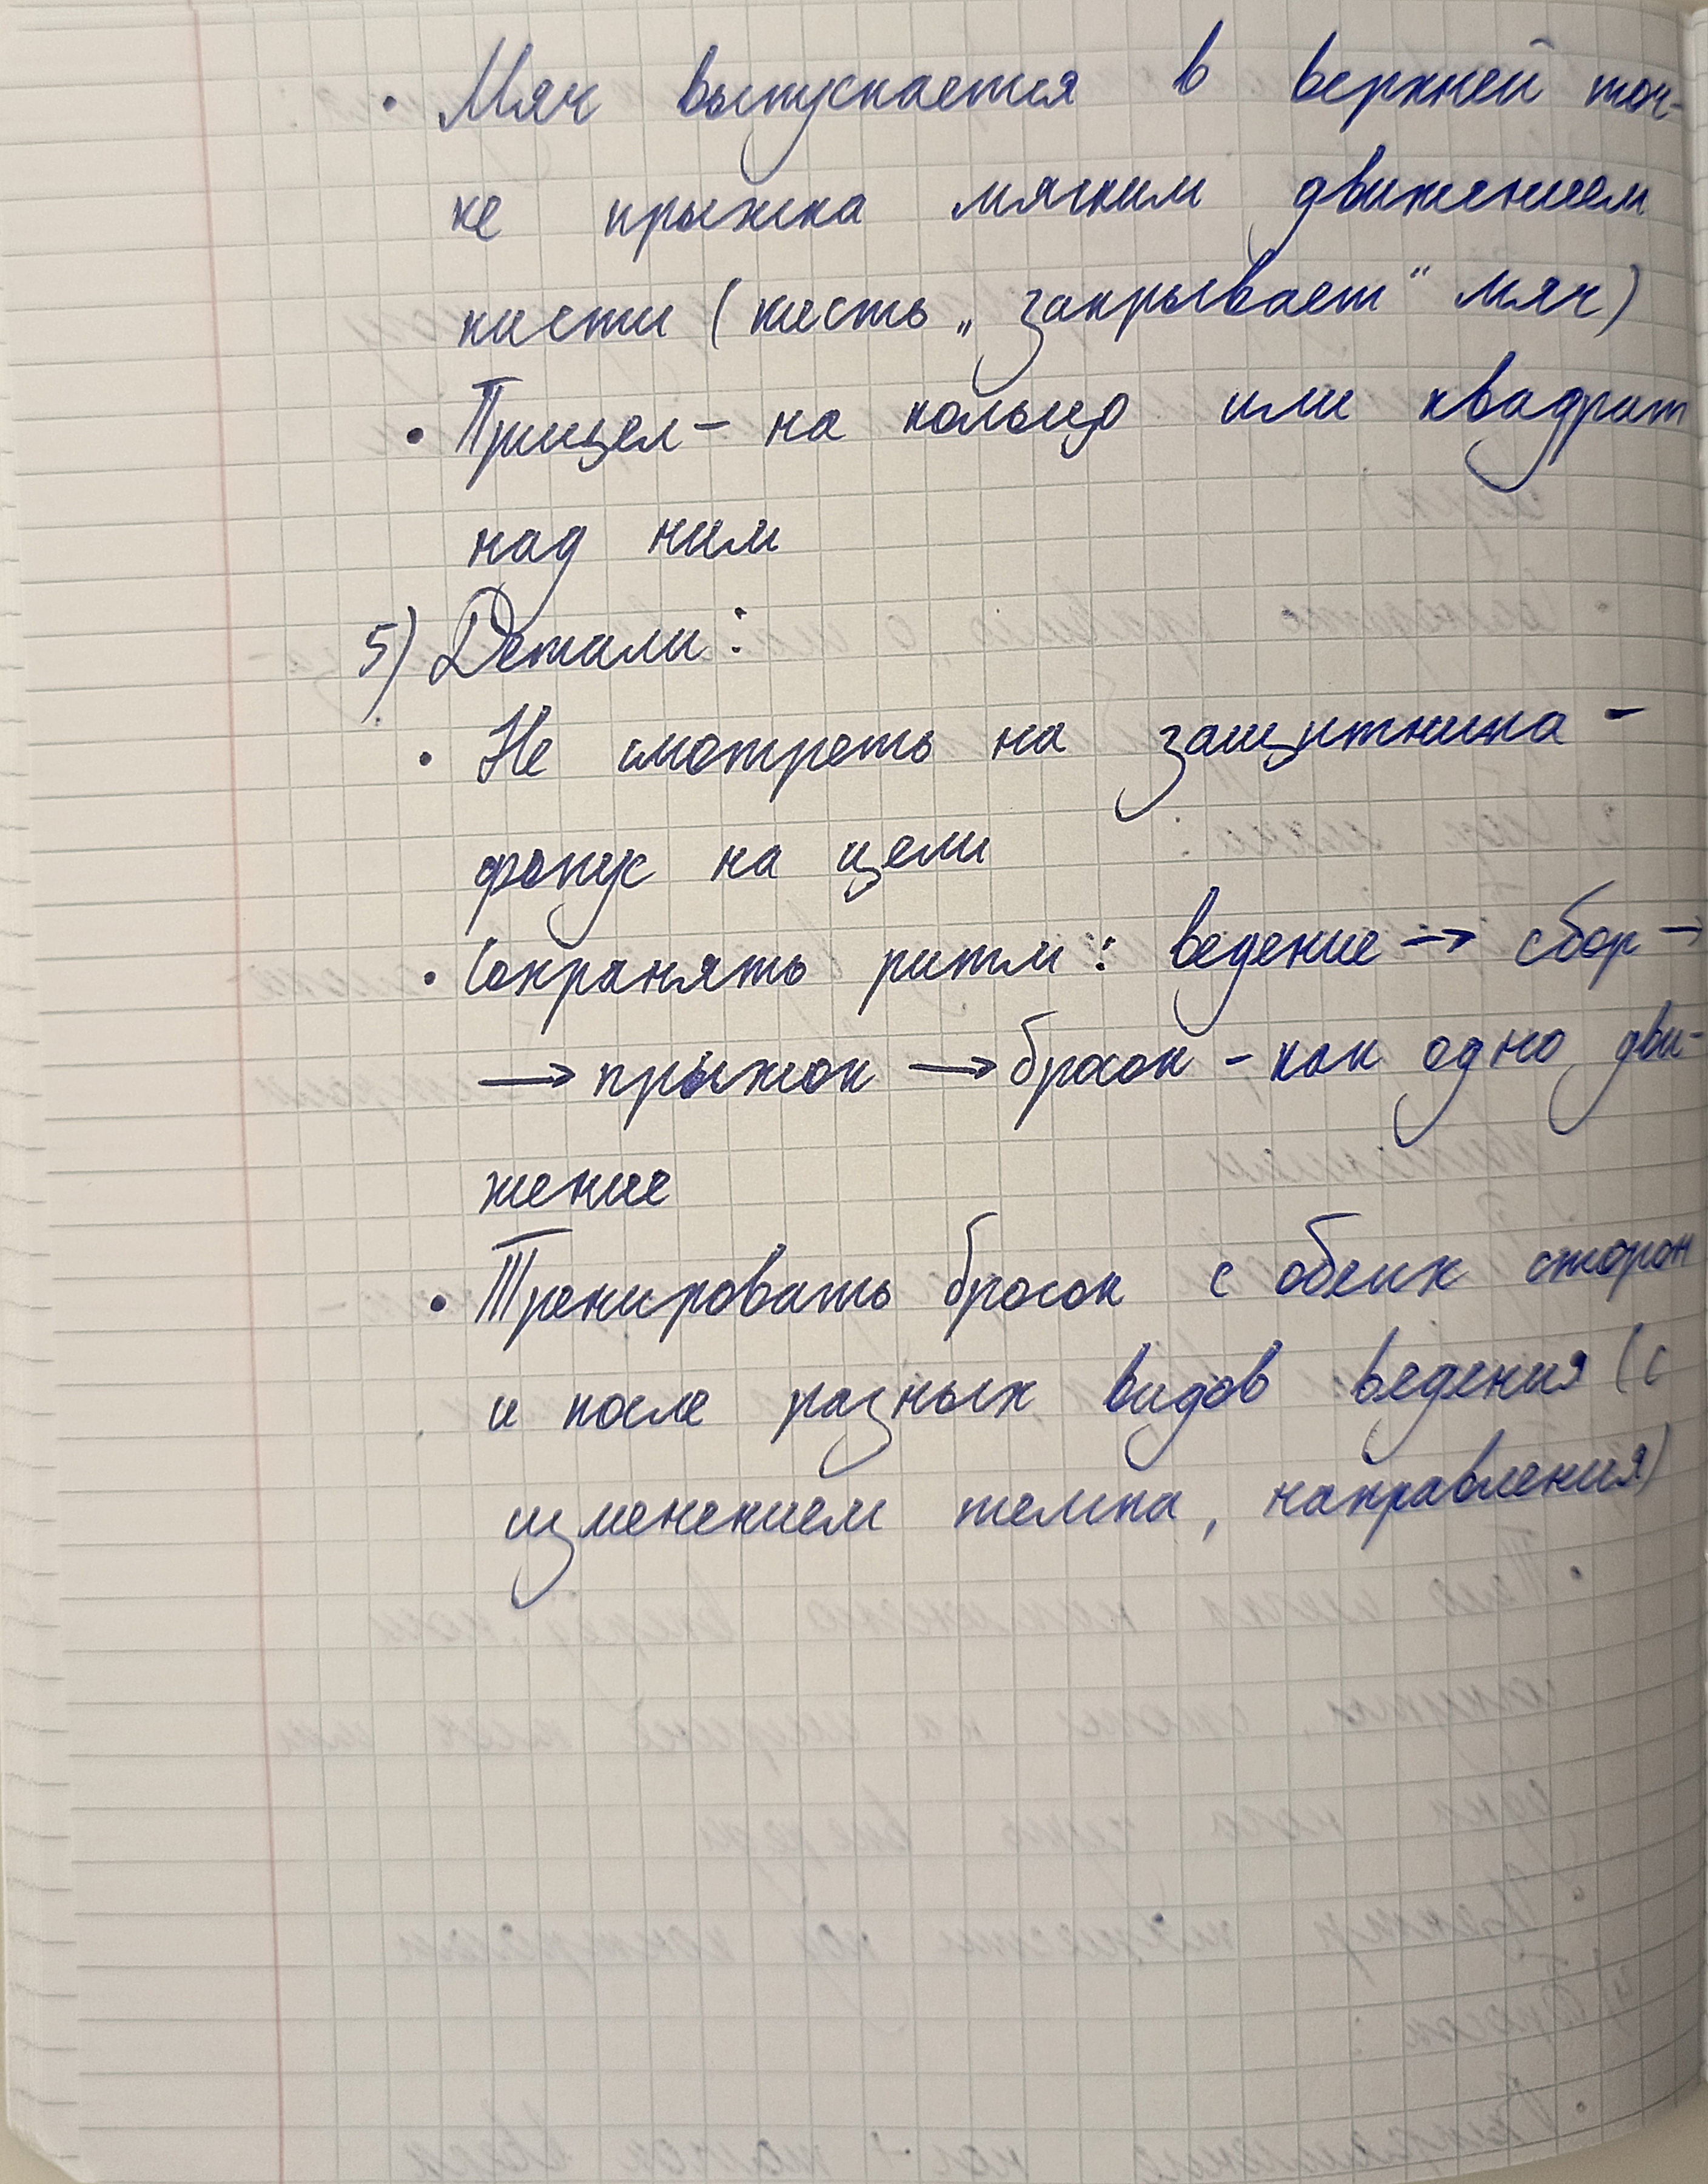 • Мяч выпускается в верхней точ-
ке прыжка мягким движением
кисти (кисть „закрывает“ мяч)
• Прицел – на кольцо или квадрат
над ним
5) Детали:
• Не смотреть на защитника –
фокус на цели
• Сохранять ритм: ведение → сбор →
→ прыжок → бросок – как одно дви-
жение
• Тренировать бросок с обеих сторон
и после разных видов ведения (с
изменением темпа, направления)